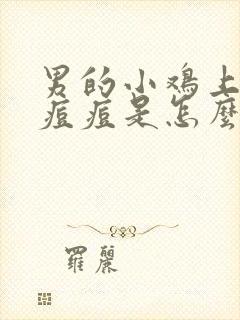 男的小鸡上
痘痘是怎麼
羅麗